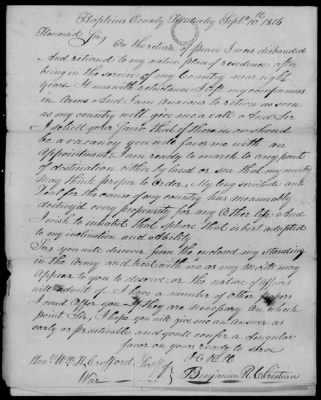 Hopkins County Kentucky Septr. 10th 1816
Honored Sir,
On the return of peace I was disbanded
And retired to my native place of residence after
being in the service of my Country near eight
years. It was with reluctance I left my companions
in Arms And I am Anxious to return as soon
as my country will give me a call. And Sir
I solicit your favor that if there is or should
be a vacancy you will favor me with an
Appointment. I am ready to march to any part
of destination either by land or sea that my country
may think proper to Order. My long servitude and
for the cause of my country has measurably
destroyed every propensity for any Other life And
I wish to inhabit that sphere that is best adapted
to my inclination and Ability
Sir you will observe from the enclosed my Standing
in the Army and treat with me as my Merits may
Appear to you to deserve or the nature of affairs
will admit of. I have a number of other papers
I could offer you if they are necessary on which
point Sir, I hope you will give me an answer as
early as practicable and you'll confer a Singular
favor on yours ready to serve
Honl. Wm. H. Crofford Secty. of
War
Benjamin R. Christian